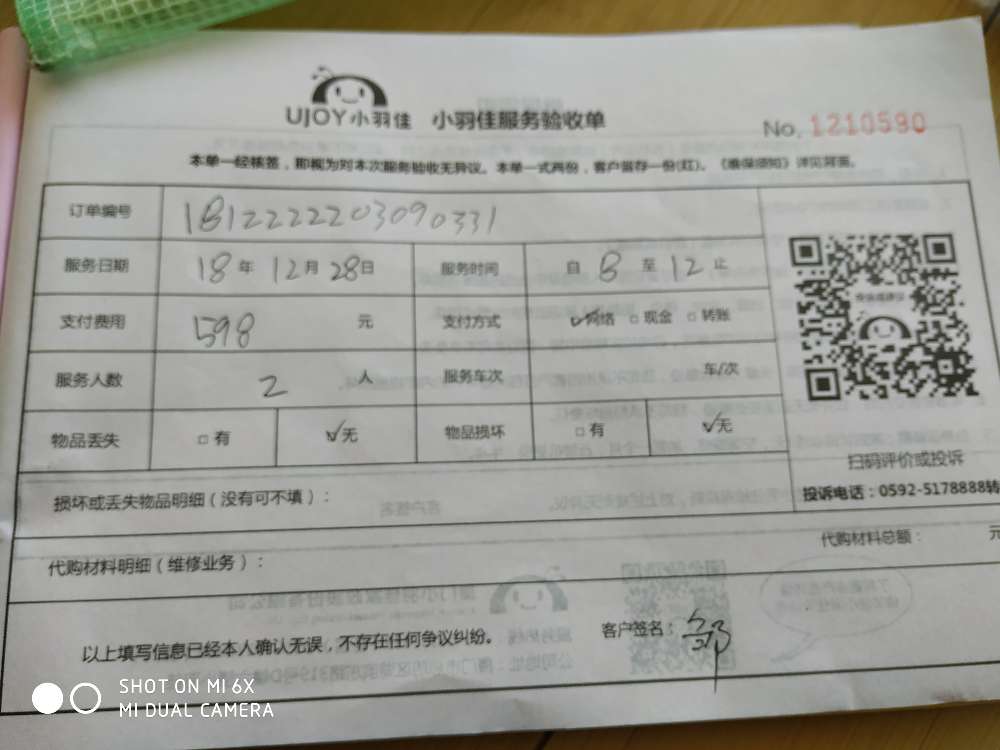 UJOY小羽佳 小羽佳服务验收单
No. 1210590
本单一经核签，即视为对本次服务验收无异议。本单一式两份，客户留存一份(红)。《维保须知》详见背面。
订单编号 181222203090331
服务日期 18年12月28日 服务时间 自8至12止
支付费用 598元 支付方式 ☑网络 □现金 □转账
服务人数 2人 服务车次 车/次
物品丢失 □有 ☑无 物品损坏 □有 ☑无
扫码评价或投诉
投诉电话：0592-5178888转
损坏或丢失物品明细（没有可不填）：
代购材料明细（维修业务）：
代购材料总额： 元
以上填写信息已经本人确认无误，不存在任何争议纠纷。 客户签名：
SHOT ON MI 6X
MI DUAL CAMERA